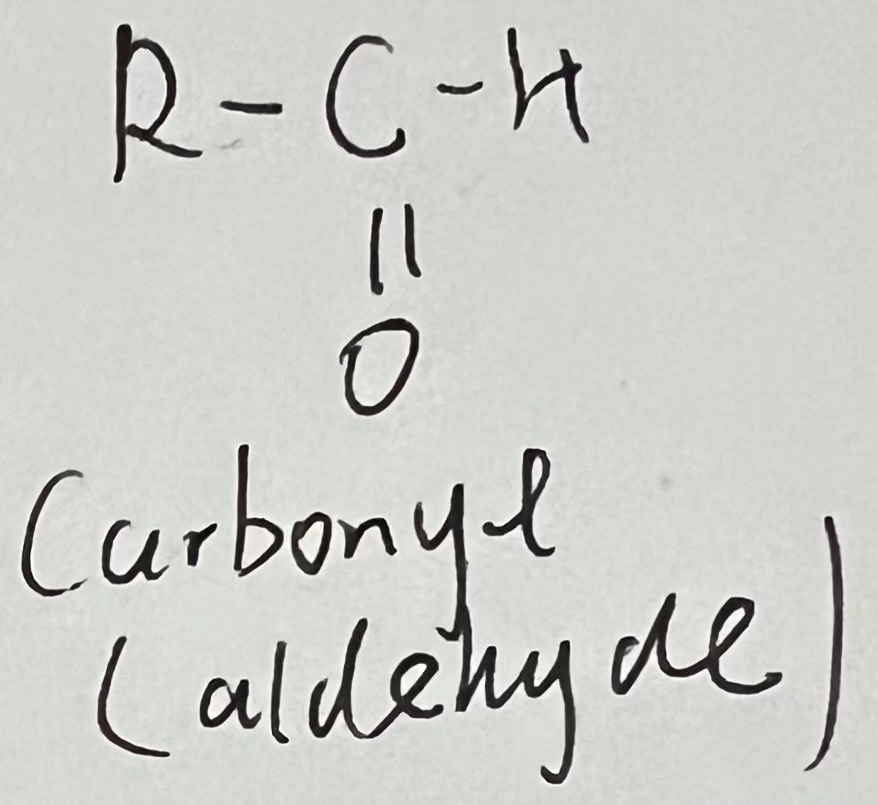 R-C-H
||
O
Carbonyl
(aldehyde)